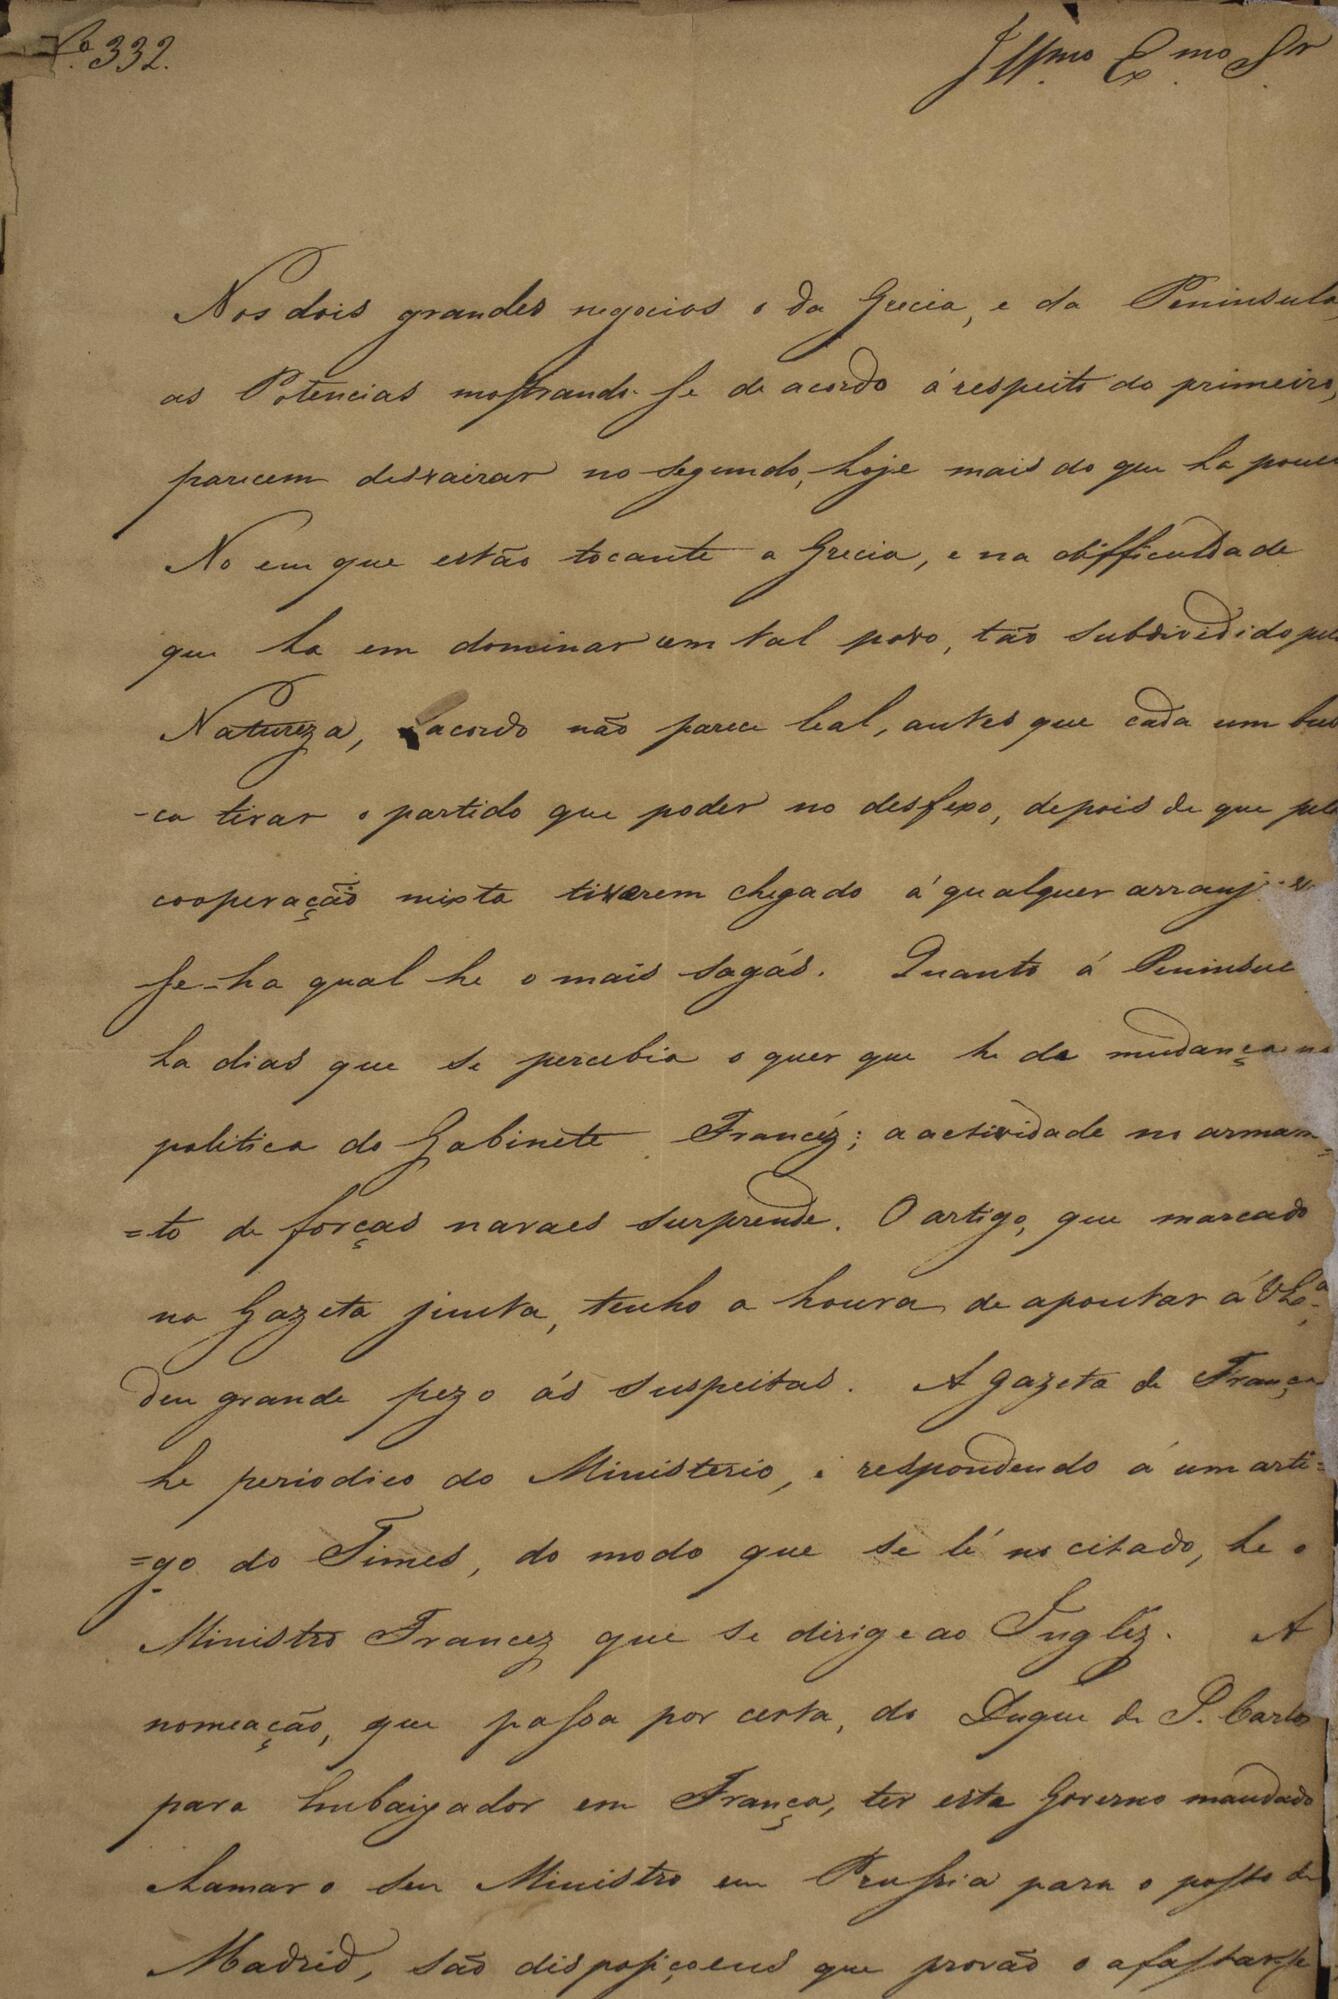 Nº 332.
Illmo Exmo Sr
Nos dois grandes negocios o da Grecia, e da Peninsula,
as Potencias mostrando-se de acordo á respeito do primeiro,
parecem desvairar no segundo, hoje mais do que ha pouco
No em que estão tocante a Grecia, e na difficuldade
que ha em dominar um tal povo, tão subdividido pela
Natureza, o acordo não parece leal, antes que cada um bus
-ca tirar o partido que poder no desfexo, depois de que pela
cooperação mixta tiverem chegado á qualquer arranjo
se-ha qual he o mais sagás. Quanto á Peninsul
ha dias que se percebia o quer que he de mudança na
politica do Gabinete Francéz; a actividade no armam
=to de forças navaes surprende. O artigo, que marcado
na Gazeta junta, tenho a honra de apontar á VExa.
deu grande pezo ás suspeitas. A Gazeta de França
he periodico do Ministerio, e respondendo á um arti=
=go do Times, do modo que se lê no citado, he o
Ministro Francez que se dirige ao Inglêz. A
nomeação, que passa por certa, do Duque de S. Carlos
para Embaixador em França, ter este Governo mandado
chamar o seu Ministro em Prussia para o posto de
Madrid, são disposiçoens que provão o afastar-se